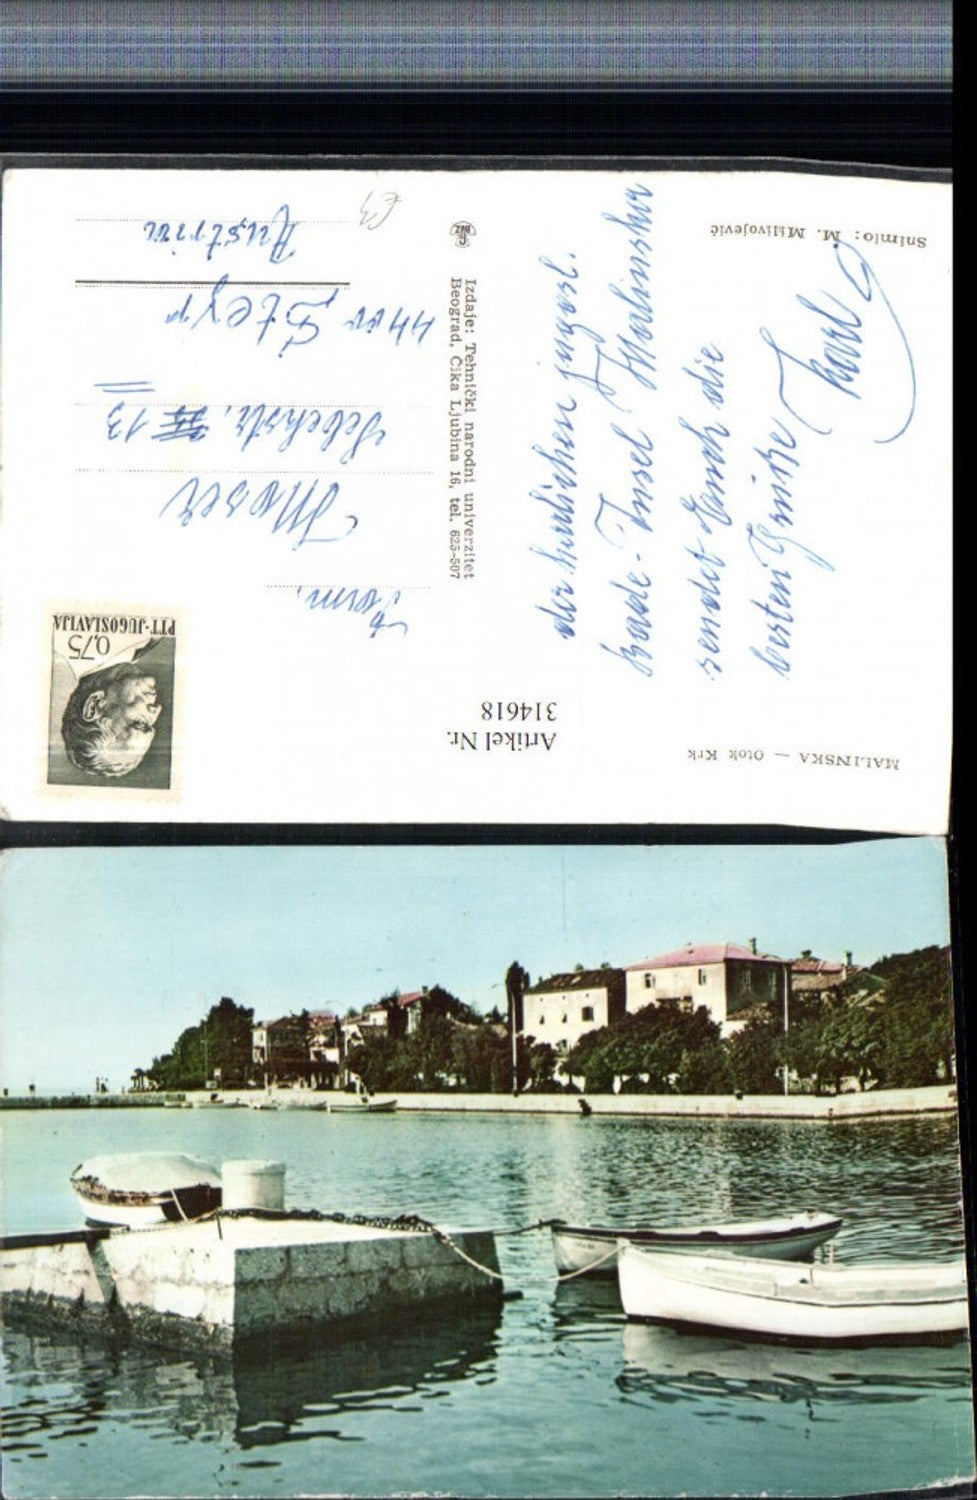 MALINSKA — Otok Krk
Artikel Nr.
314618
der herrlichen jugosl.
Bade-Insel Malinska
sendet Euch die
besten Grüsse
Karl
Snimio: M. Milivojević
Izdaje: Tehnički narodni univerzitet
Beograd, Čika Ljubina 16, tel. 625-507
0,75
PTT-JUGOSLAVIJA
Fam.
Moser
13
4400 Steyr
Austria